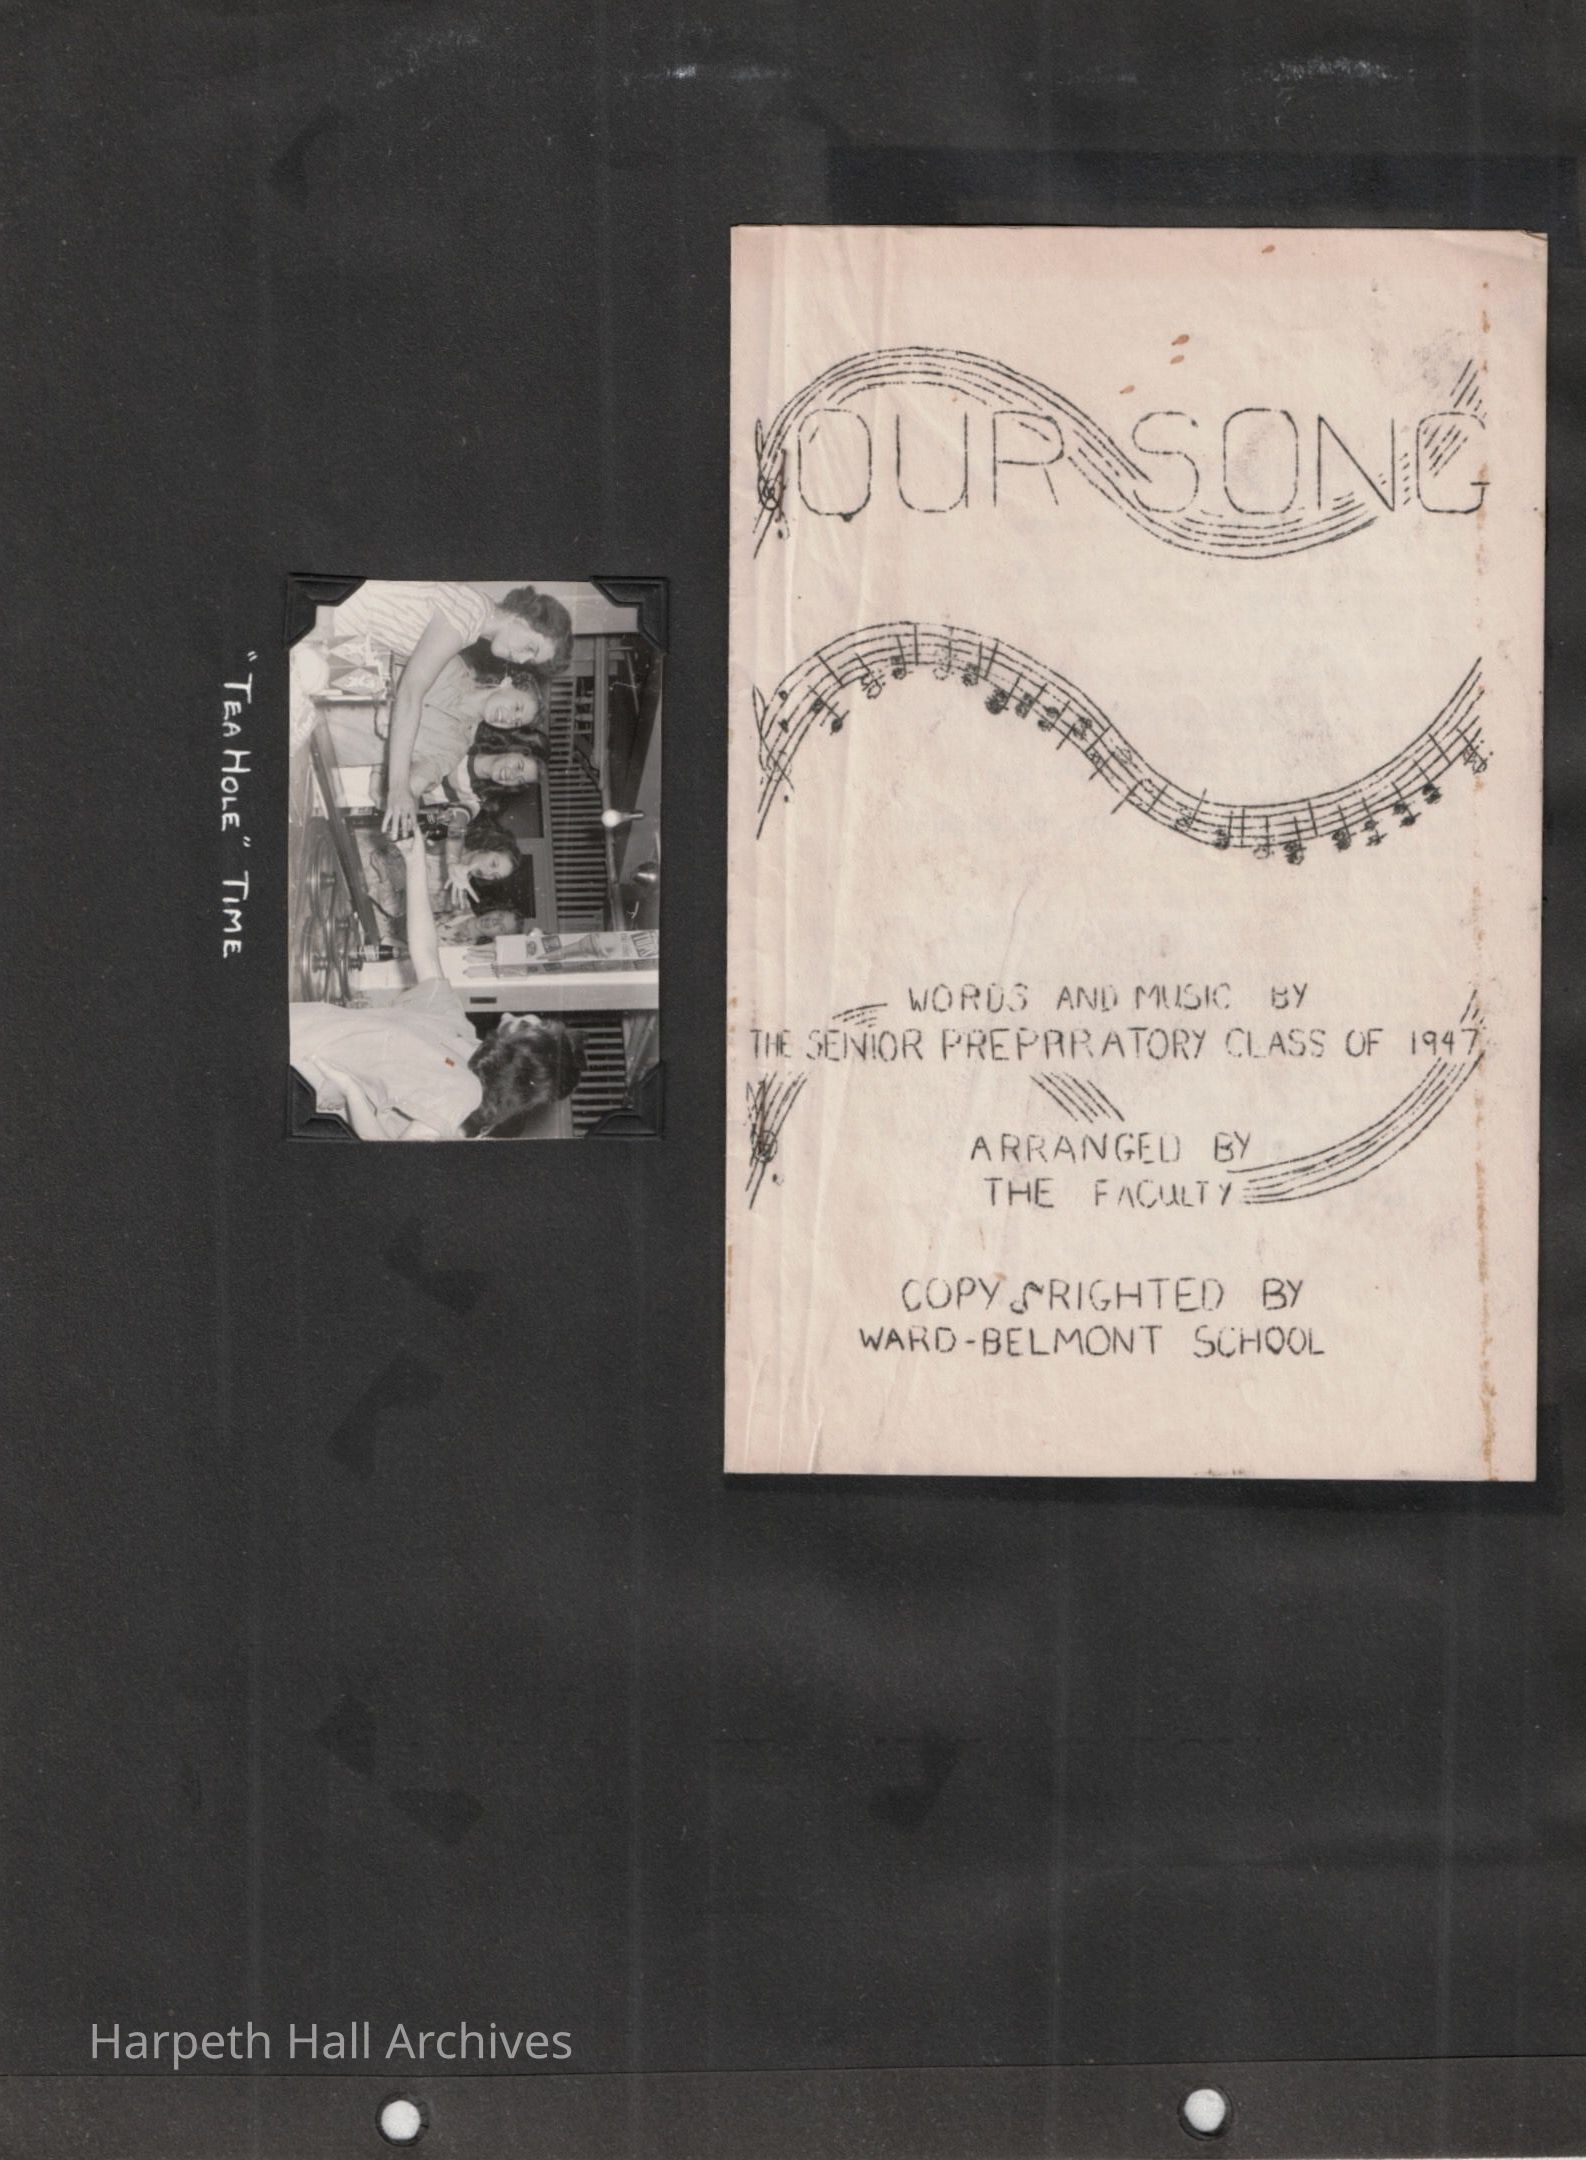 "TEA HOLE" TIME
OUR SONG
WORDS AND MUSIC BY
THE SENIOR PREPARATORY CLASS OF 1947
ARRANGED BY
THE FACULTY
COPYRIGHTED BY
WARD-BELMONT SCHOOL
Harpeth Hall Archives